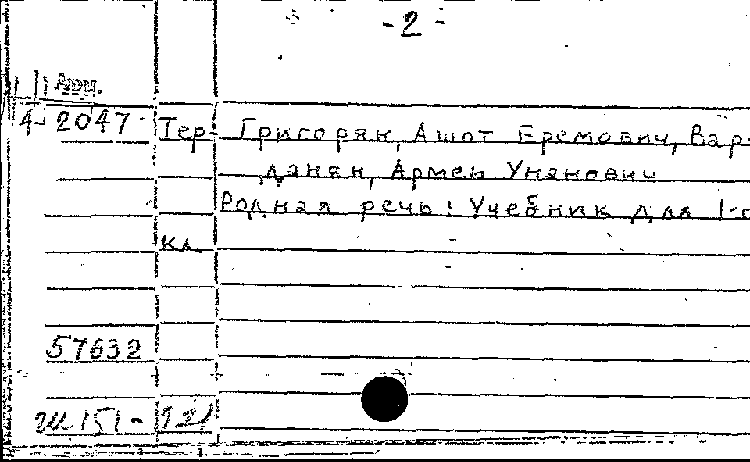 -2-
Арм.
4-2047 Тер-Григорян, Ашот Еремович, Вар-
данян, Армен Унанович
Родная речь: Учебник для 1-г
кл.
57632
151-